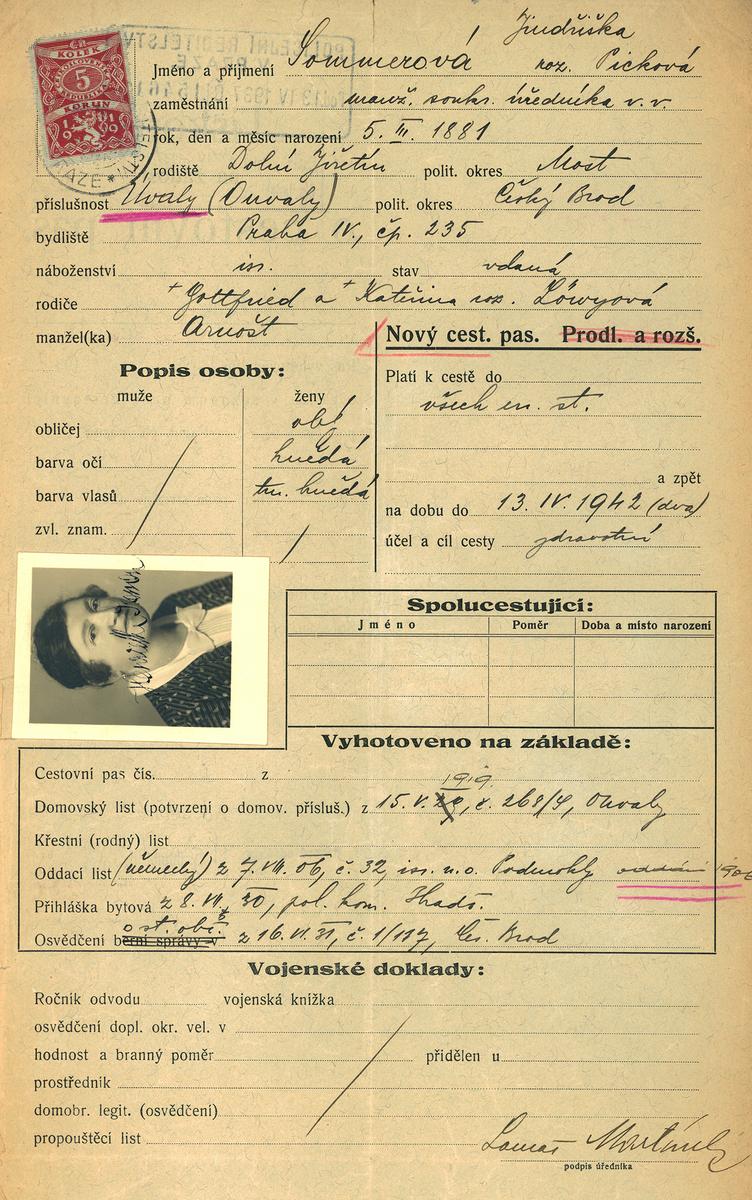 Jindřiška
Jméno a příjmení Sommerová roz. Picková
zaměstnání manž. soukr. úředníka v. v.
rok, den a měsíc narození 5. III. 1881
rodiště Dolní Jiřetín polit. okres Most
příslušnost Úvaly (Ouvaly) polit. okres Český Brod
bydliště Praha IV., čp. 235
náboženství isr. stav vdaná
rodiče +Gottfried a +Kateřina roz. Löwyová
manžel(ka) Arnošt
Nový cest. pas. Prodl. a rozš.
Popis osoby:
muže ženy
obličej obl
barva očí hnědá
barva vlasů tm. hnědá
zvl. znam.
Platí k cestě do
všech ev. st.
a zpět
na dobu do 13. IV. 1942 (dva)
účel a cíl cesty zdravotní
KOLEK
5
KORUN
1919
Spolucestující:
Jméno Poměr Doba a místo narození
Vyhotoveno na základě:
Cestovní pas čís. z
1919.
Domovský list (potvrzení o domov. přísluš.) z 15. V. č. 268/4, Ouvaly
Křestní (rodný) list
Oddací list (německý) z 7. VIII. 06, č. 32, isr. n. o. Podmokly oddáni 1906
Přihláška bytová z 8. VII. 30, pol. kom. Hradč.
o st. obč.
Osvědčení berní správy v z 16. VI. 31, č. 1/117, Čes. Brod
Vojenské doklady:
Ročník odvodu vojenská knížka
osvědčení dopl. okr. vel. v
hodnost a branný poměr přidělen u
prostředník
domobr. legit. (osvědčení)
propouštěcí list
podpis úředníka